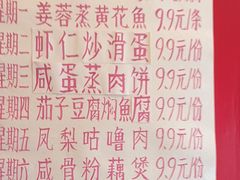 星期一 姜蓉蒸黄花魚 9.9元/条
星期二 虾仁炒滑蛋 9.9元/份
星期三 咸蛋蒸肉饼 9.9元/份
星期四 茄子豆腐焖魚腐 9.9元/份
星期五 凤梨咕噜肉 9.9元/份
星期六 咸骨粉藕煲 9.9元/份